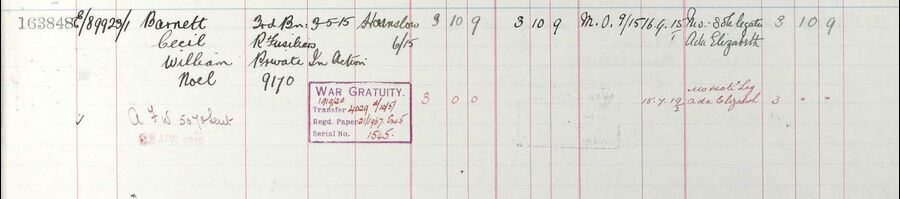 163848 E/89923/1 Barnett 3rd Bn: 9-5-15 Hounslow 3 10 9 3 10 9 M.O. 9/15 16.9.15 Mo: Sole legatee 3 10 9
Cecil R Fusiliers 6/15 Ada Elizabeth
William Private In Action
Noel 9170
WAR GRATUITY. 3 0 0 Mo Sole Leg
Transfer 15.7.19 Ada Elizabeth 3 - -
Regd. Paper
Serial No. 1545.
A F W 5070 Sent